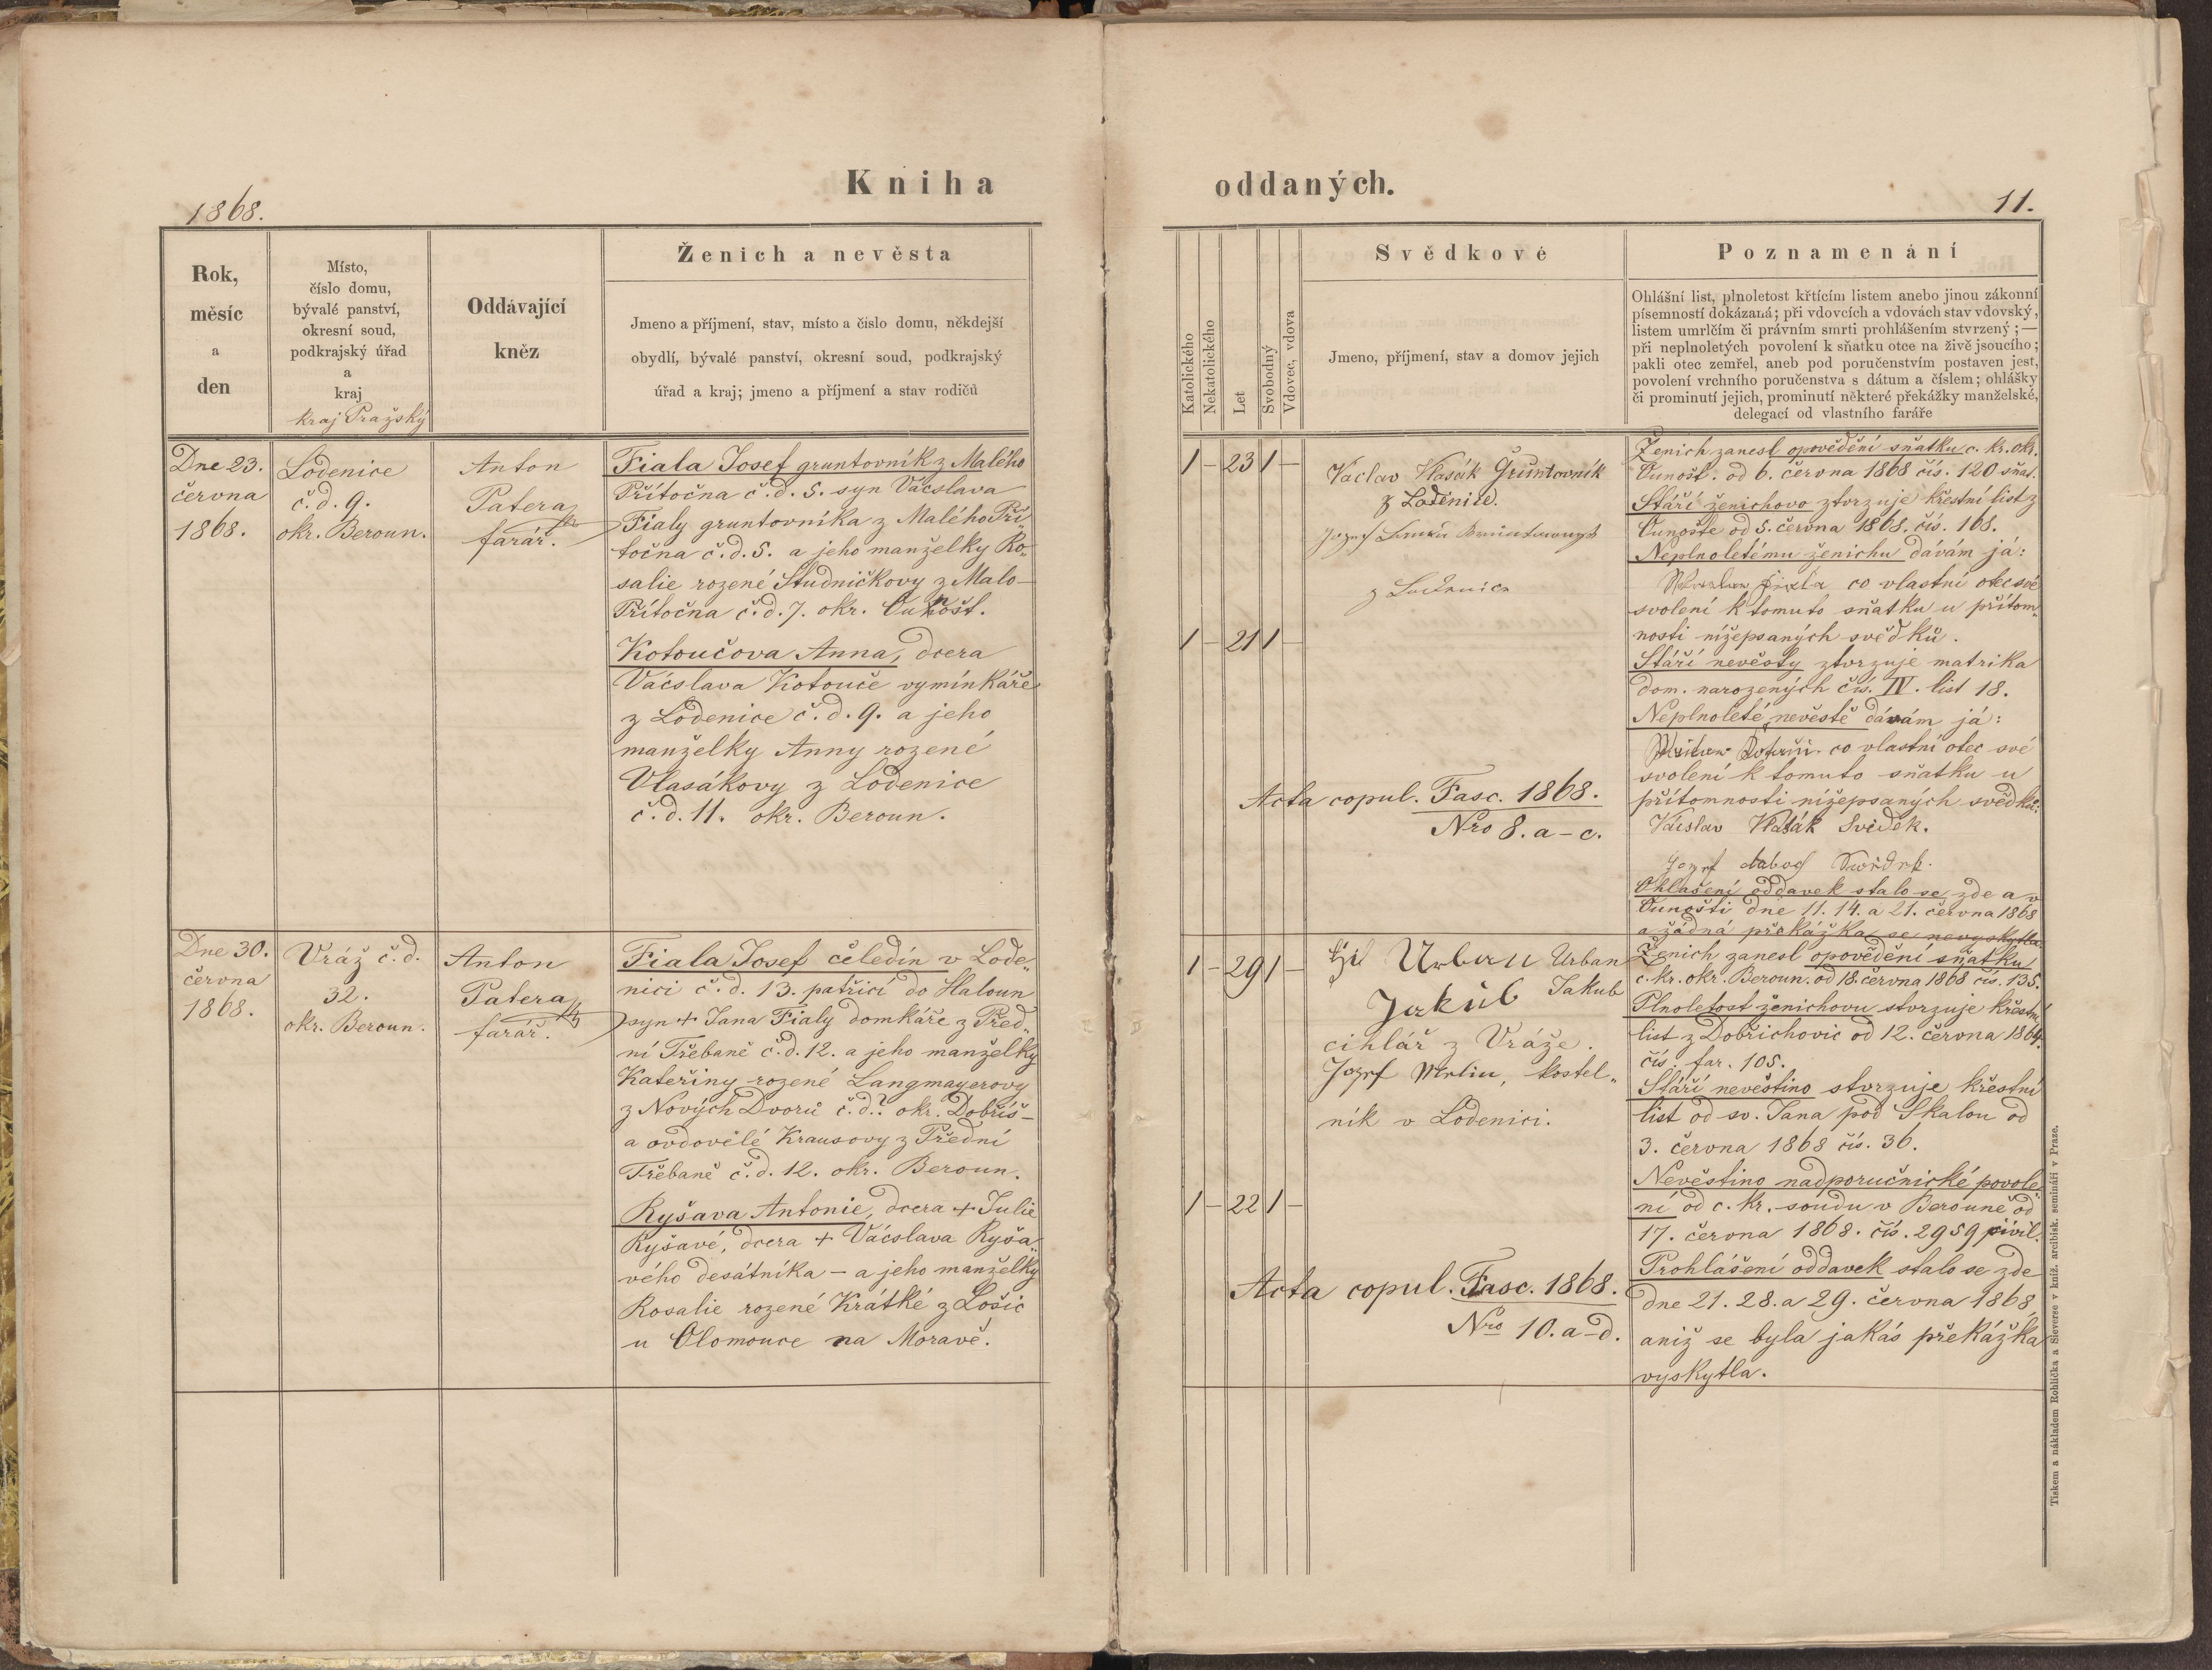 Kniha oddaných.
1868.
11.
Rok,
měsíc
a
den
Místo,
číslo domu,
bývalé panství,
okresní soud,
podkrajský úřad
a
kraj
kraj Pražský
Oddávající
kněz
Ženich a nevěsta
Jmeno a příjmení, stav, místo a číslo domu, někdejší
obydlí, bývalé panství, okresní soud, podkrajský
úřad a kraj; jmeno a příjmení a stav rodičů
Katolického
Nekatolického
Let
Svobodný
Vdovec, vdova
Svědkové
Jmeno, příjmení, stav a domov jejich
Poznamenání
Ohlášní list, plnoletost křtícím listem anebo jinou zákonní
písemností dokázaná; při vdovcích a vdovách stav vdovský,
listem umrlčím či právním smrti prohlášením stvrzený; —
při neplnoletých povolení k sňatku otce na živě jsoucího;
pakli otec zemřel, aneb pod poručenstvím postaven jest,
povolení vrchního poručenstva s dátum a číslem; ohlášky
či prominutí jejich, prominutí některé překážky manželské,
delegací od vlastního faráře
Dne 23.
června
1868.
Lodenice
č. d. 9.
okr. Beroun.
Anton
Patera
farář.
Fiala Josef gruntovník z Malého
Přítočna č. d. 5. syn Václslava
Fialy gruntovníka z Malého Pří„
točna č. d. 5. a jeho manželky Ro„
salie rozené Studničkovy z Malo-
Přítočna č. d. 7. okr. Ounošt.
Kotoučova Anna, dcera
Václslava Kotouče vymínkáře
z Lodenice č. d. 9. a jeho
manželky Anny rozené
Vlasákovy z Lodenice
č. d. 11. okr. Beroun.
1 – 23 1 –
1 – 21 1 –
Vaclav Vlasák Gruntovník
z Lodenice.
Acta copul. Fasc. 1868.
Nro 8. a – c.
Ženich zanesl opovědění sňatku c. kr. okr.
Ounošt. od 6. června 1868 čís. 120 sňat.
Stáří ženichovo ztvrzuje křestní list z
Ounoště od 5. června 1868. čís. 168.
Neplnoletému ženichu dávám já:
Fiala co vlastní otec své
svolení k tomuto sňatku u přítom„
nosti nížepsaných svědků.
Stáří nevěsty ztvrzuje matrika
dom. narozených čís. IV. list 18.
Neplnoleté nevěstě dávám já:
co vlastní otec své
svolení k tomuto sňatku u
přítomnosti nížepsaných svědků:
Václslav Vlasák Svědek.
Jozef
Ohlašení oddavek stalo se zde a v
Ounošti dne 11. 14. a 21. června 1868
a žádná překážka se nevyskytla.
Dne 30.
června
1868.
Vráž č. d.
32.
okr. Beroun.
Anton
Patera
farář.
Fiala Josef čeledín v Lode„
nici č. d. 13. patřící do Haloun
syn + Jana Fialy domkáře z Před„
ní Třebaně č. d. 12. a jeho manželky
Kateřiny rozené Langmayerovy
z Nových Dvorů č. d. ? okr. Dobříš –
a ovdovělé Krausovy z Přední
Třebaně č. d. 12. okr. Beroun.
Ryšava Antonie, dcera + Julie
Ryšavé, dcera + Václslava Ryša„
vého desátníka – a jeho manželky
Rosalie rozené Krátké z Lošic
u Olomouce na Moravě.
1 – 29 1 –
1 – 22 1 –
Urban Urban
Jakub Jakub
cihlář z Vráže.
Jozef Merlin, kostel„
ník v Lodenici.
Acta copul. Fasc. 1868.
Nro 10. a – d.
Ženich zanesl opovědění sňatku
c. kr. okr. Beroun. od 18. června 1868 čís. 135.
Plnoletost ženichovu stvrzuje křestní
list z Dobřichovic od 12. června 1864.
čís. far. 105.
Stáří nevěstino stvrzuje křestní
list od sv. Jana pod Skalou od
3. června 1868 čís. 36.
Nevěstino nadporučnické povole„
ní od c. kr. soudu v Berouně od
17. června 1868. čís. 2959 civil.
Prohlášení oddavek stalo se zde
dne 21. 28. a 29. června 1868,
aniž se byla jakás překážka
vyskytla.
Tiskem a nákladem Rohlíčka a Sieverse v kníž. arcibisk. semináři v Praze.